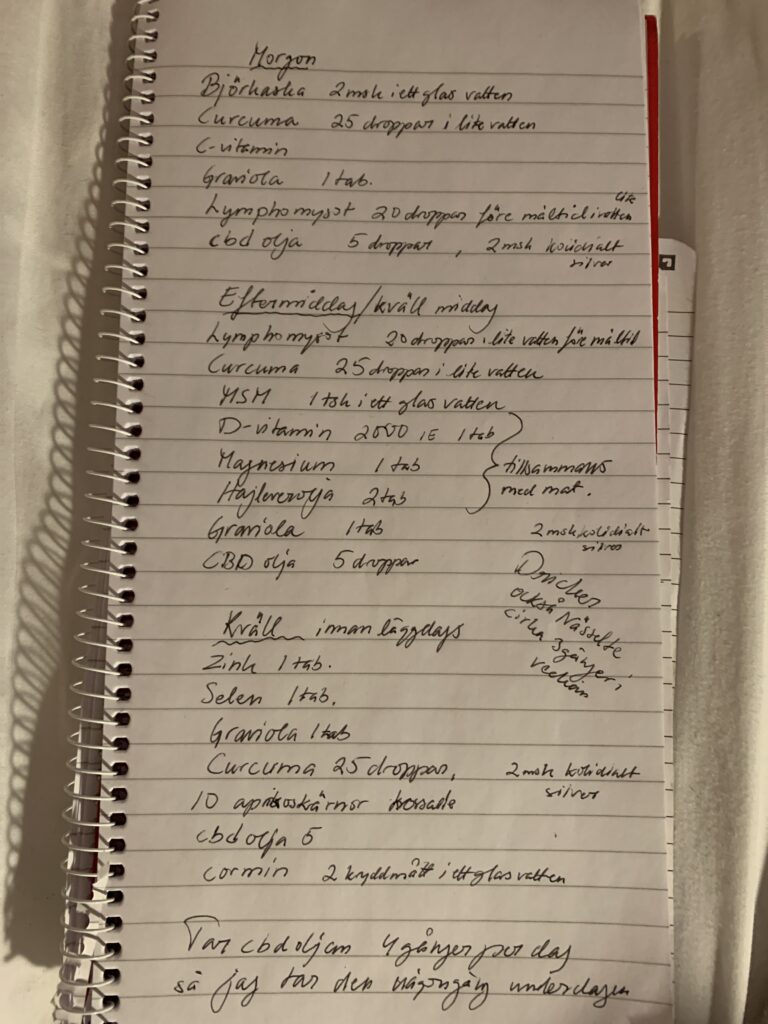 Morgon
Björkaska 2msk i ett glas vatten
Curcuma 25 droppar i lite vatten
C-vitamin
Graviola 1 tab.
Lymphomysot 20 droppar före måltid i lite vatten
cbd olja 5 droppar, 2 msk kolidialt silver
Eftermiddag/kväll middag
Lymphomysot 20 droppar i lite vatten före måltid
Curcuma 25 droppar i lite vatten
MSM 1 tsk i ett glas vatten
D-vitamin 2000 IE 1 tab
Magnesium 1 tab
Hajleverolja 2 tab
tillsammans
med mat.
Graviola 1 tab 2 msk kolidialt silver
CBD olja 5 droppar
Dricker
också Nässelte
cirka 3 gånger i
veckan
Kväll innan läggdags
Zink 1 tab.
Selen 1 tab.
Graviola 1 tab
Curcuma 25 droppar, 2 msk kolidialt silver
10 aprikoskärnor
cbd olja 5
cormin 2 kryddmått i ett glas vatten
Tar cbd oljan 4 gånger per dag
så jag tar den någongång under dagen